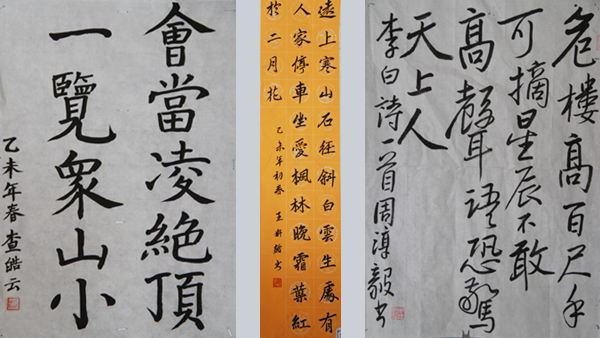 會當凌絕頂
一覽衆山小
乙未年春 查皓云
遠上寒山石徑斜白雲生處有
人家停車坐愛楓林晚霜葉紅
於二月花
乙未年初春 王 书
危樓高百尺手
可摘星辰不敢
高聲語恐驚
天上人
李白詩一首周淳毅书